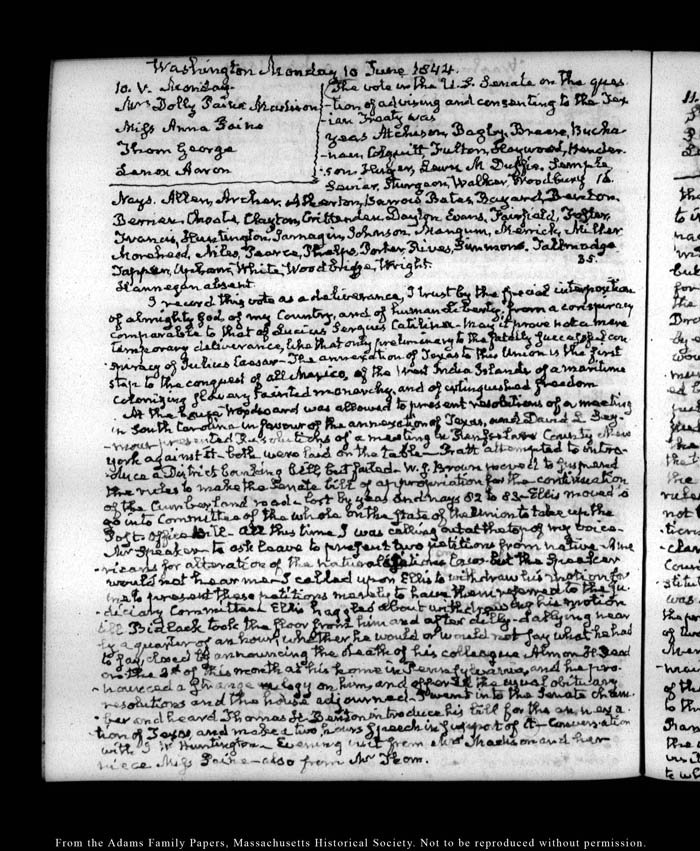 Washington Monday 10 June 1844.
10. V. Monday
Mrs Dolly Paine Madison
Miss Anna Paine
Thom George
Lenox Aaron
The vote in the U.S. Senate on the ques
-tion of advising and consenting to the Tex
ian Treaty was
Yeas Atchison, Bagby, Breese, Bucha
nan, Colquitt, Fulton, Haywood, Hender
son, Huger, Lewis, McDuffie, Semple,
Sevier, Sturgeon, Walker, Woodbury 16.
Nays. Allen, Archer, Atherton, Barrow, Bates, Bayard, Benton.
Berrien, Choate, Clayton, Crittenden, Dayton, Evans, Fairfield, Foster,
Francis, Huntington, Jarnagin, Johnson, Mangum, Merrick, Miller
Morehead, Niles, Pearce, Phelps, Porter, Rives, Simmons, Tallmadge
Tappan, Upham, White, Woodbridge, Wright. 35.
Hannegan absent.
I record this vote as a deliverance, I trust by the special interposition
of almighty God, of my Country, and of human liberty, from a conspiracy
comparable to that of Lucius Sergius Catilina - May it prove not a mere
temporary deliverance, like that only preliminary to the fatally successful con
spiracy of Julius Caesar - The annexation of Texas to this Union is the first
step to the conquest of all Mexico, of the West India Islands, of a maritime
colonizing slavery tainted monarchy, and of extinguished freedom
At the house Woodward was allowed to present resolutions of a meeting
in South Carolina in favour of the annexation of Texas, and David L. Sey-
-mour presented Resolutions of a meeting in Rensselaer County New
York against it - both were laid on the table - Pratt attempted to intro-
-duce a District banking bill, but failed - W. J. Brown moved to suspend
the rules to make the Senate bill of appropriation for the continuation
of the Cumberland road - lost by yeas and nays 82 to 83 - Ellis moved to
go into Committee of the whole on the state of the Union to take up the
Post-Office bill - All this time I was calling out at the top of my voice -
Mr Speaker - to ask leave to present two petitions from native Ame
ricans for alteration of the naturalization laws but the Speaker
would not hear me - I called upon Ellis to withdraw his motion for
me to present these petitions merely to have them referred to the Ju-
-diciary Committee - Ellis haggled about withdrawing his motion
till Bidlack took the floor from him and after dilly-dallying near
by a quarter of an hour, whether he would or would not say what he had
to say, closed by announcing the death of his colleague Almon H. Read
on the 3d of this month at his home in Pennsylvania, and he pro-
-nounced a strange eulogy on him, and offered the usual obituary
resolutions and the house adjourned - I went into the Senate cham-
-ber and heard Thomas H. Benton introduce his bill for the annexa-
tion of Texas, and make a two hours speech in support of it - Conversation
with J. W. Huntington - Evening visit from Mrs Madison and her
niece Miss Paine - also from Mr Thom.
From the Adams Family Papers, Massachusetts Historical Society. Not to be reproduced without permission.